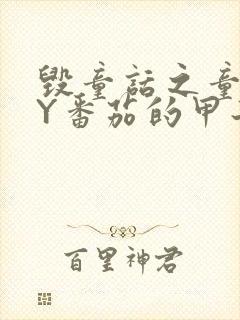 毁童话之童
Y番茄的甲
百里神君